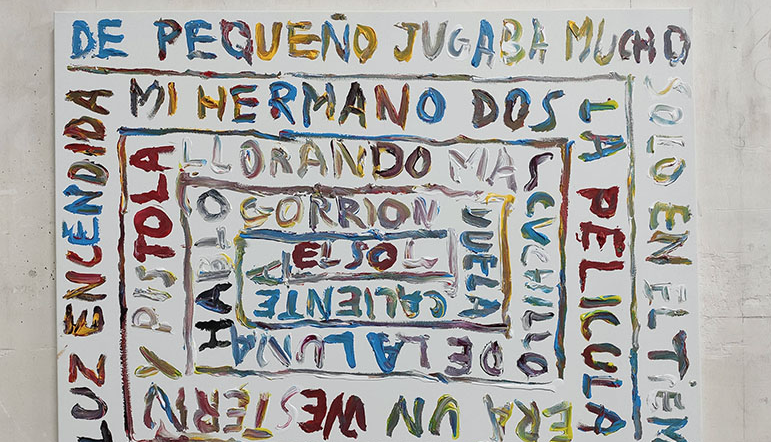 DE PEQUEÑO JUGABA MUCHO
SOLO EN EL TIEM
LUZ ENCENDIDA
MI HERMANO DOS
LA PELICULA
ERA UN WESTERN
Y PISTOLA
LLORANDO MAS
CUCHILLO
DE LA LUNA
HABLO
GORRION
VUELA
CALIENTE
EL SOL